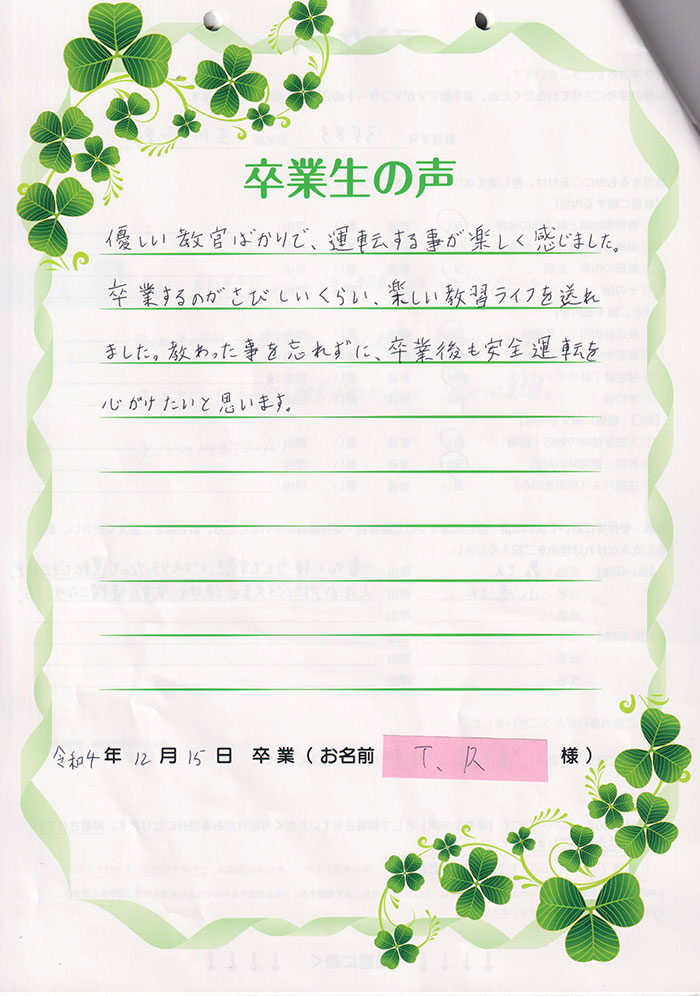 卒業生の声
優しい教官ばかりで、運転する事が楽しく感じました。
卒業するのがさびしいくらい、楽しい教習ライフを送れ
ました。教わった事を忘れずに、卒業後も安全運転を
心がけたいと思います。
令和4年12月15日 卒業(お名前 T、R 様)